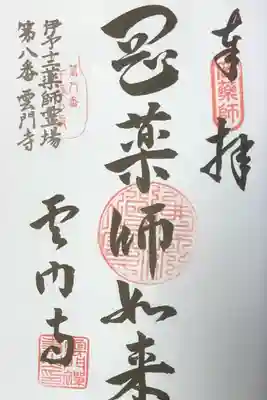 奉拝
薬師
罡薬師如来
第八番
伊予十二薬師霊場
第八番 雲門寺
雲門寺